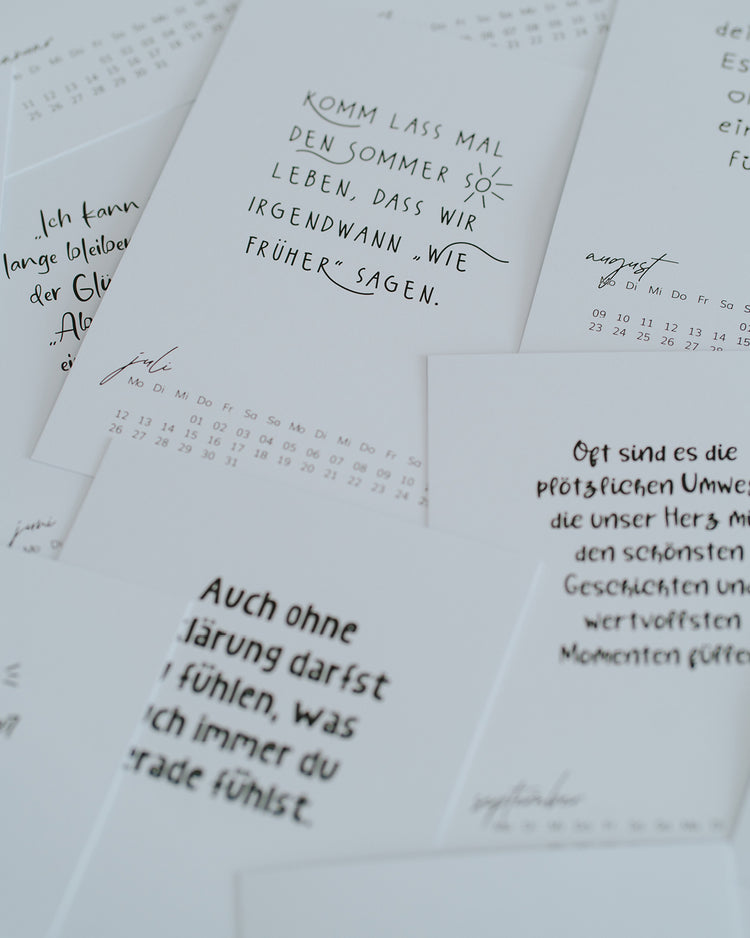 11 12 13 14
25 26 27 28 29 30 31
KOMM LASS MAL
DEN SOMMER SO
LEBEN, DASS WIR
IRGENDWANN „WIE
FRÜHER“ SAGEN.
juli
Mo Di Mi Do Fr Sa So Mo Di Mi Do Fr Sa
01 02 03 04 05 06 07 08 09 10
12 13 14 15 16 17 18 19 20 21 22 23 24
26 27 28 29 30 31
„Ich kann
lange bleiben
der Glü
„Ab
ei
dei
Es
ein
fü
august
Mo Di Mi Do Fr Sa S
09 10 11 12 13 14 15
23 24 25 26 27 28
juni
Mo
Oft sind es die
plötzlichen Umwe
die unser Herz mi
den schönsten
Geschichten un
wertvollsten
Momenten füllen
september
Auch ohne
klärung darfst
fühlen, was
uch immer du
erade fühlst.